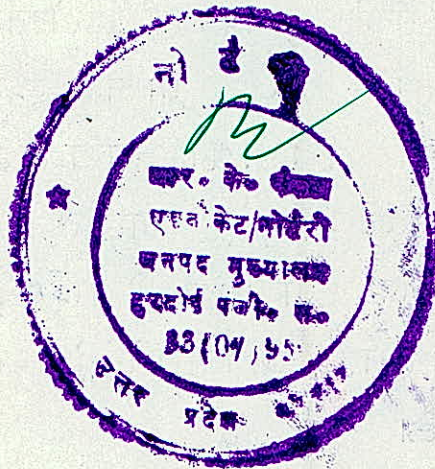 नो ट
आर० के०
एडवोकेट/नोटरी
जनपद मुख्यालय
हरदोई पंजी० सं०
33(04)95
उत्तर प्रदेश